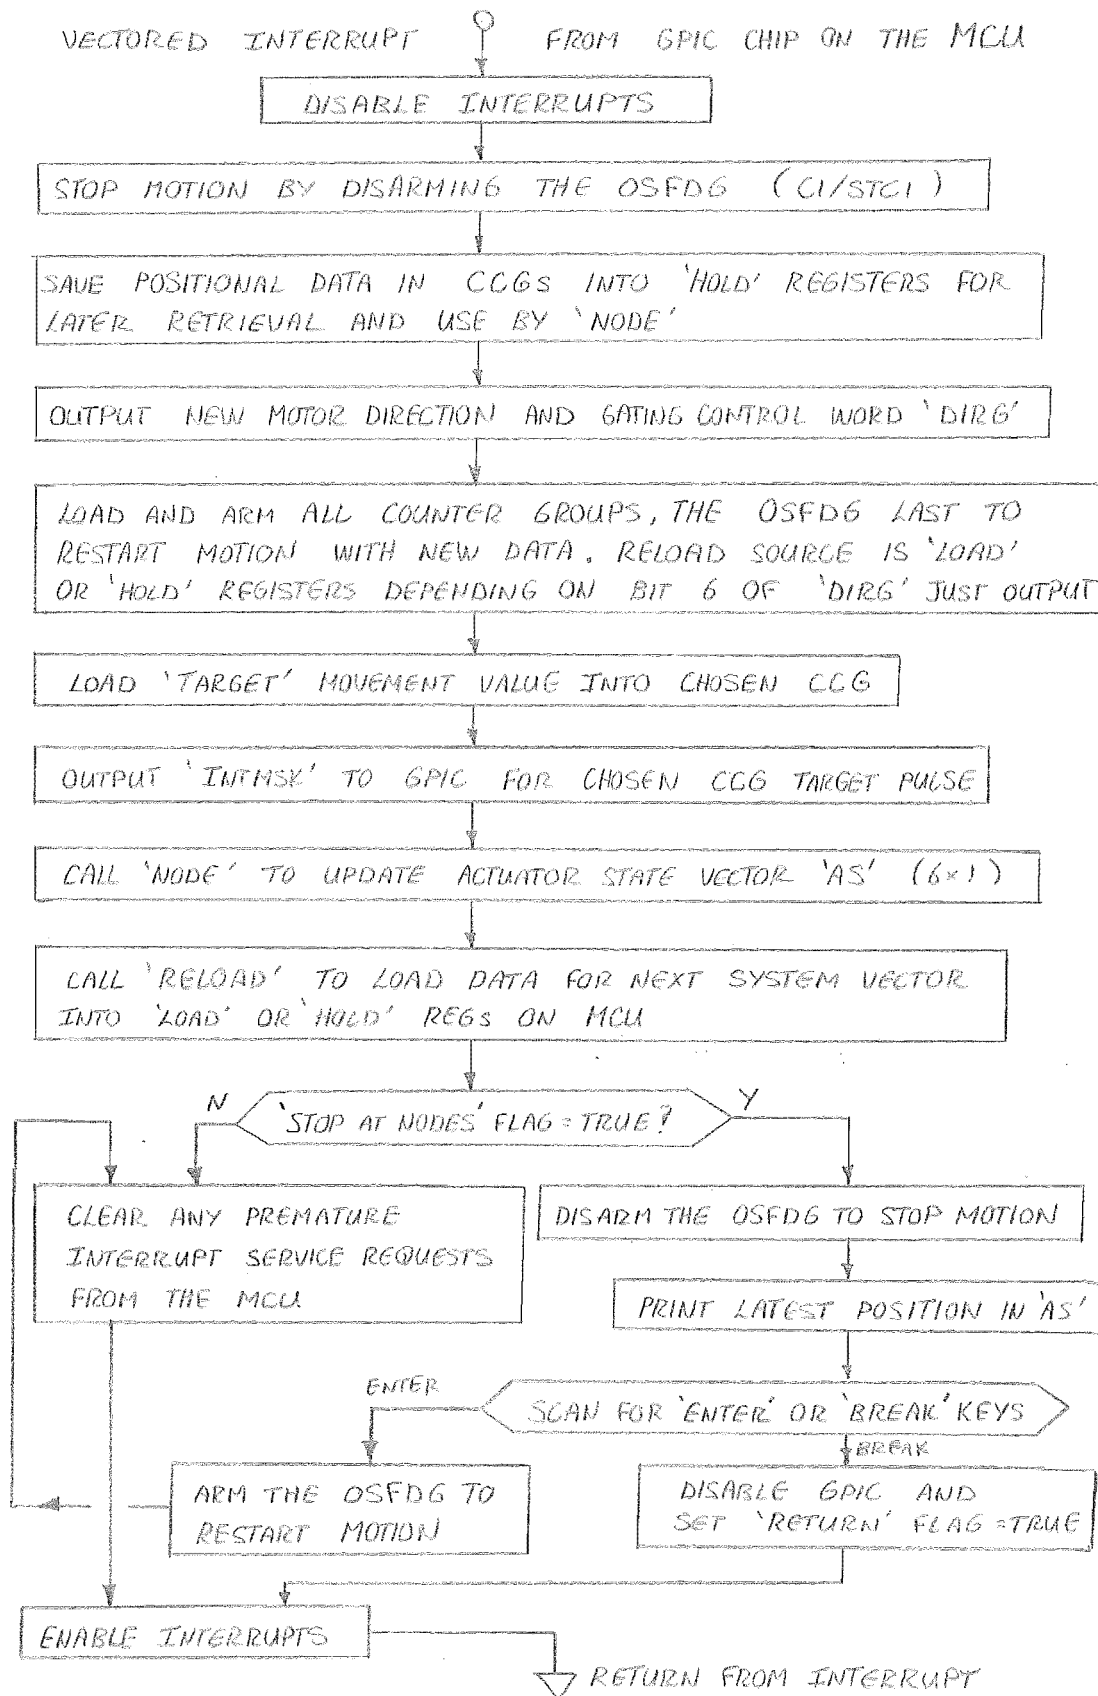 VECTORED INTERRUPT FROM GPIC CHIP ON THE MCU
DISABLE INTERRUPTS
STOP MOTION BY DISARMING THE OSFDG (C1/STC1)
SAVE POSITIONAL DATA IN CCGs INTO 'HOLD' REGISTERS FOR
LATER RETRIEVAL AND USE BY 'NODE'
OUTPUT NEW MOTOR DIRECTION AND GATING CONTROL WORD 'DIRG'
LOAD AND ARM ALL COUNTER GROUPS, THE OSFDG LAST TO
RESTART MOTION WITH NEW DATA. RELOAD SOURCE IS 'LOAD'
OR 'HOLD' REGISTERS DEPENDING ON BIT 6 OF 'DIRG' JUST OUTPUT
LOAD 'TARGET' MOVEMENT VALUE INTO CHOSEN CCG
OUTPUT 'INTMSK' TO GPIC FOR CHOSEN CCG TARGET PULSE
CALL 'NODE' TO UPDATE ACTUATOR STATE VECTOR 'AS' (6×1)
CALL 'RELOAD' TO LOAD DATA FOR NEXT SYSTEM VECTOR
INTO 'LOAD' OR 'HOLD' REGS ON MCU
N 'STOP AT NODES' FLAG = TRUE? Y
CLEAR ANY PREMATURE
INTERRUPT SERVICE REQUESTS
FROM THE MCU
DISARM THE OSFDG TO STOP MOTION
PRINT LATEST POSITION IN 'AS'
ENTER
SCAN FOR 'ENTER' OR 'BREAK' KEYS
BREAK
ARM THE OSFDG TO
RESTART MOTION
DISABLE GPIC AND
SET 'RETURN' FLAG = TRUE
ENABLE INTERRUPTS
RETURN FROM INTERRUPT